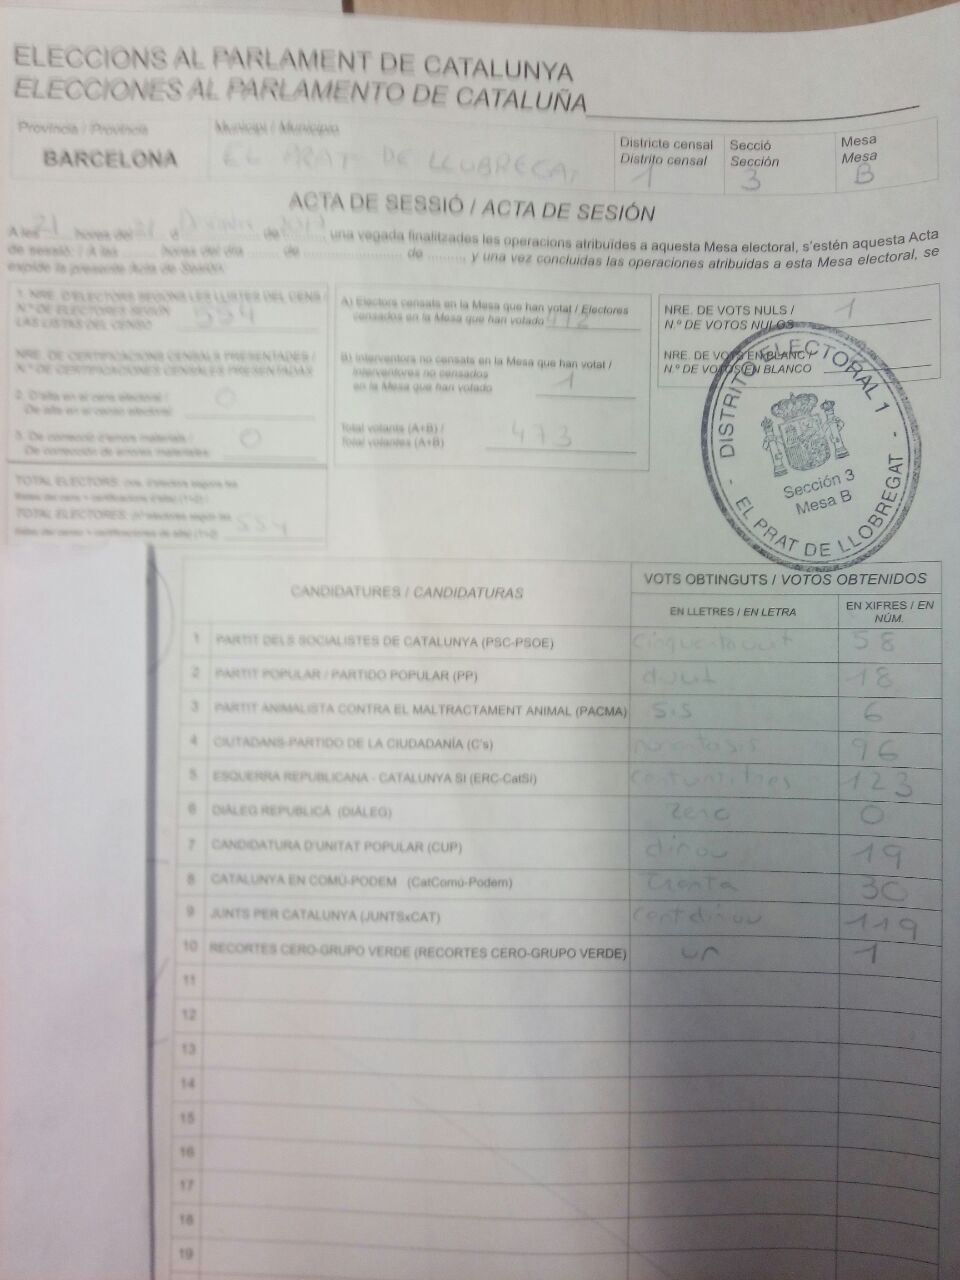 ELECCIONS AL PARLAMENT DE CATALUNYA
ELECCIONES AL PARLAMENTO DE CATALUÑA
Província / Provincia
BARCELONA
Municipi / Municipio
EL PRAT DE LLOBREGAT
Districte censal
Distrito censal
1
Secció
Sección
3
Mesa
Mesa
B
ACTA DE SESSIÓ / ACTA DE SESIÓN
A les 21 hores del 21 d de una vegada finalitzades les operacions atribuïdes a aquesta Mesa electoral, s'estén aquesta Acta
de sessió. / A las ......... horas del día ......... de ......................... de ......... y una vez concluidas las operaciones atribuidas a esta Mesa electoral, se
expide la presente Acta de Sesión.
1. NRE. D'ELECTORS SEGONS LES LLISTES DEL CENS /
N.º DE ELECTORES SEGÚN
LAS LISTAS DEL CENSO 554
NRE. DE CERTIFICACIONS CENSALS PRESENTADES /
N.º DE CERTIFICACIONES CENSALES PRESENTADAS
2. D'alta en el cens electoral /
De alta en el censo electoral 0
3. De correcció d'errors materials /
De corrección de errores materiales 0
TOTAL ELECTORS:
TOTAL ELECTORES: 554
A) Electors censats en la Mesa que han votat / Electores
censados en la Mesa que han votado 472
B) Interventors no censats en la Mesa que han votat /
Interventores no censados
en la Mesa que han votado 1
Total votants (A+B) /
Total votantes (A+B) 473
NRE. DE VOTS NULS /
N.º DE VOTOS NULOS 1
NRE. DE VOTS EN BLANC /
N.º DE VOTOS EN BLANCO
- DISTRITO ELECTORAL 1 -
Sección 3
Mesa B
EL PRAT DE LLOBREGAT
CANDIDATURES / CANDIDATURAS
VOTS OBTINGUTS / VOTOS OBTENIDOS
EN LLETRES / EN LETRA
EN XIFRES / EN
NÚM.
1 PARTIT DELS SOCIALISTES DE CATALUNYA (PSC-PSOE) 58
2 PARTIT POPULAR / PARTIDO POPULAR (PP) 18
3 PARTIT ANIMALISTA CONTRA EL MALTRACTAMENT ANIMAL (PACMA) sis 6
4 CIUTADANS-PARTIDO DE LA CIUDADANÍA (C's) 96
5 ESQUERRA REPUBLICANA - CATALUNYA SÍ (ERC-CatSí) 123
6 DIÀLEG REPUBLICÀ (DIÀLEG) zero 0
7 CANDIDATURA D'UNITAT POPULAR (CUP) dinou 19
8 CATALUNYA EN COMÚ-PODEM (CatComú-Podem) trenta 30
9 JUNTS PER CATALUNYA (JUNTSxCAT) cent dinou 119
10 RECORTES CERO-GRUPO VERDE (RECORTES CERO-GRUPO VERDE) un 1
11
12
13
14
15
16
17
18
19